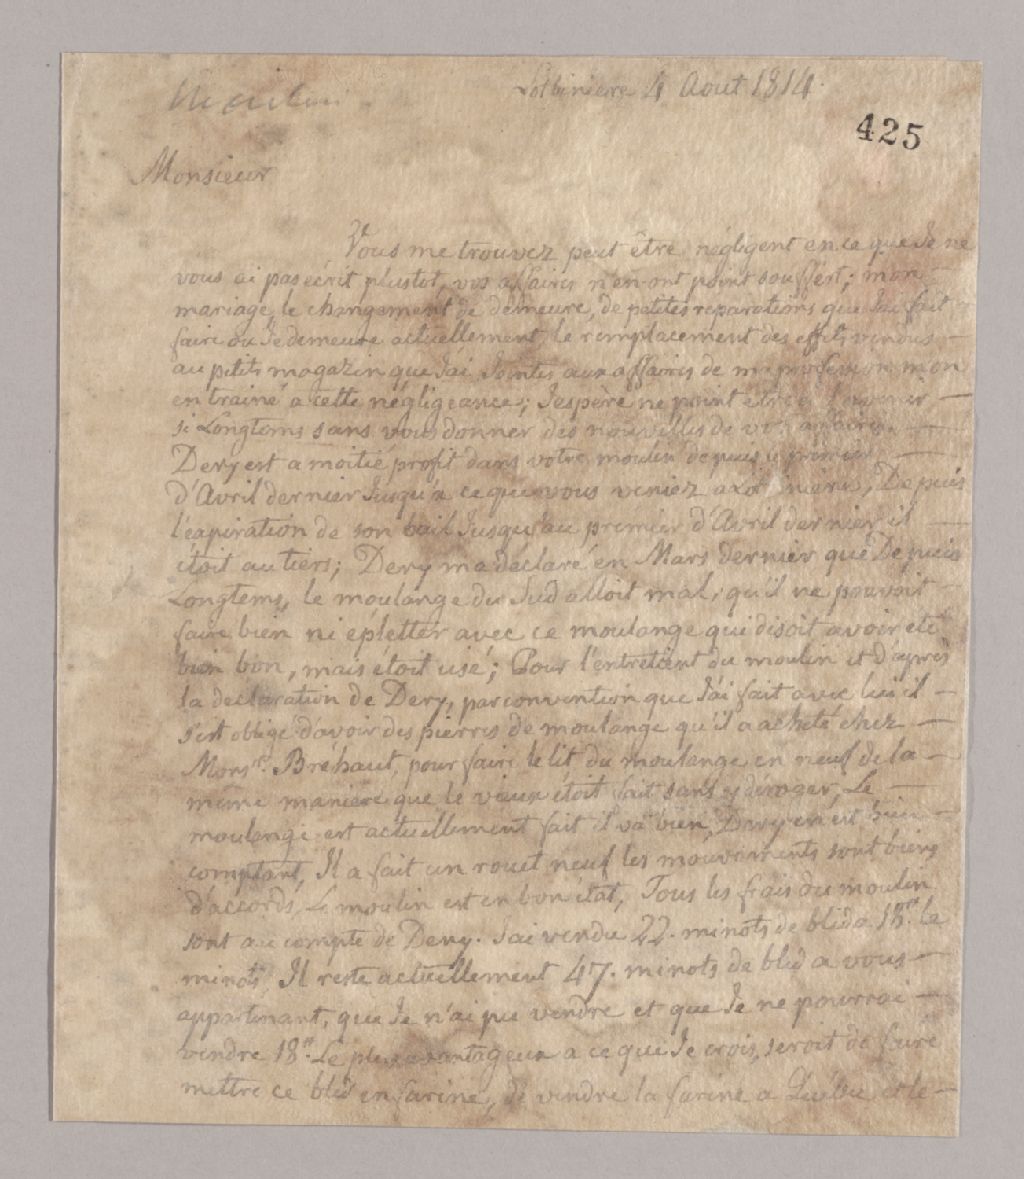 Lotbiniere 4 Aout 1814
425
Monsieur
Vous me trouvez peut être négligent en ce que Je ne
vous ai pas ecrit plustot, vos affaires n'en ont point souffert; mon
mariage, le changement de demeure, de petites reparations que J'ai fait
faire où Je demeure actuellement, le remplacement des effets vendus
au petits magazin que J'ai Jointes aux affaires de ma profession mon
entrainé a cette négligeance; J'espère ne point être a l'avenir
si Longtems sans vous donner des nouvelles de vos affaires.
Dery est a moitié profit dans votre moulin depuis le premier
d'Avril dernier Jusqu'a ce que vous veniez a Lotbiniere, Depuis
l'expiration de son bail Jusqu'au premier d'Avril dernier il
étoit au tiers; Dery m'a déclaré en Mars dernier que Depuis
Longtems, le moulange du Sud alloit mal, qu'il ne pouvoit
faire bien ni epletter avec ce moulange qui disoit avoir eté
bien bon, mais étoit usé; Pour l'entretient du moulin et d'après
la declaration de Dery, par convention que J'ai fait avec lui il
s'est obligé d'avoir des pierres de moulange qu'il a acheté chez
Monsr. Bréhaut, pour faire le lit du moulange en neuf de la
même maniere que le vieux étoit fait sans y déroger, Le
moulange est actuellement fait il va bien, Dery en est bien
comptant, Il a fait un rouet neuf les mouvements sont biens
d'accords, Le moulin est en bon état, Tous les frais du moulin
sont au compte de Dery. J'ai vendu 22. minots de bled a 18" le
minots Il reste actuellement 47. minots de bled a vous
appartenant, que Je n'ai pu vendre et que Je ne pourrai
vendre 18" Le plus avantageux a ce que Je crois, seroit de faire
mettre ce bled en farine, de vendre la farine a Québec et le